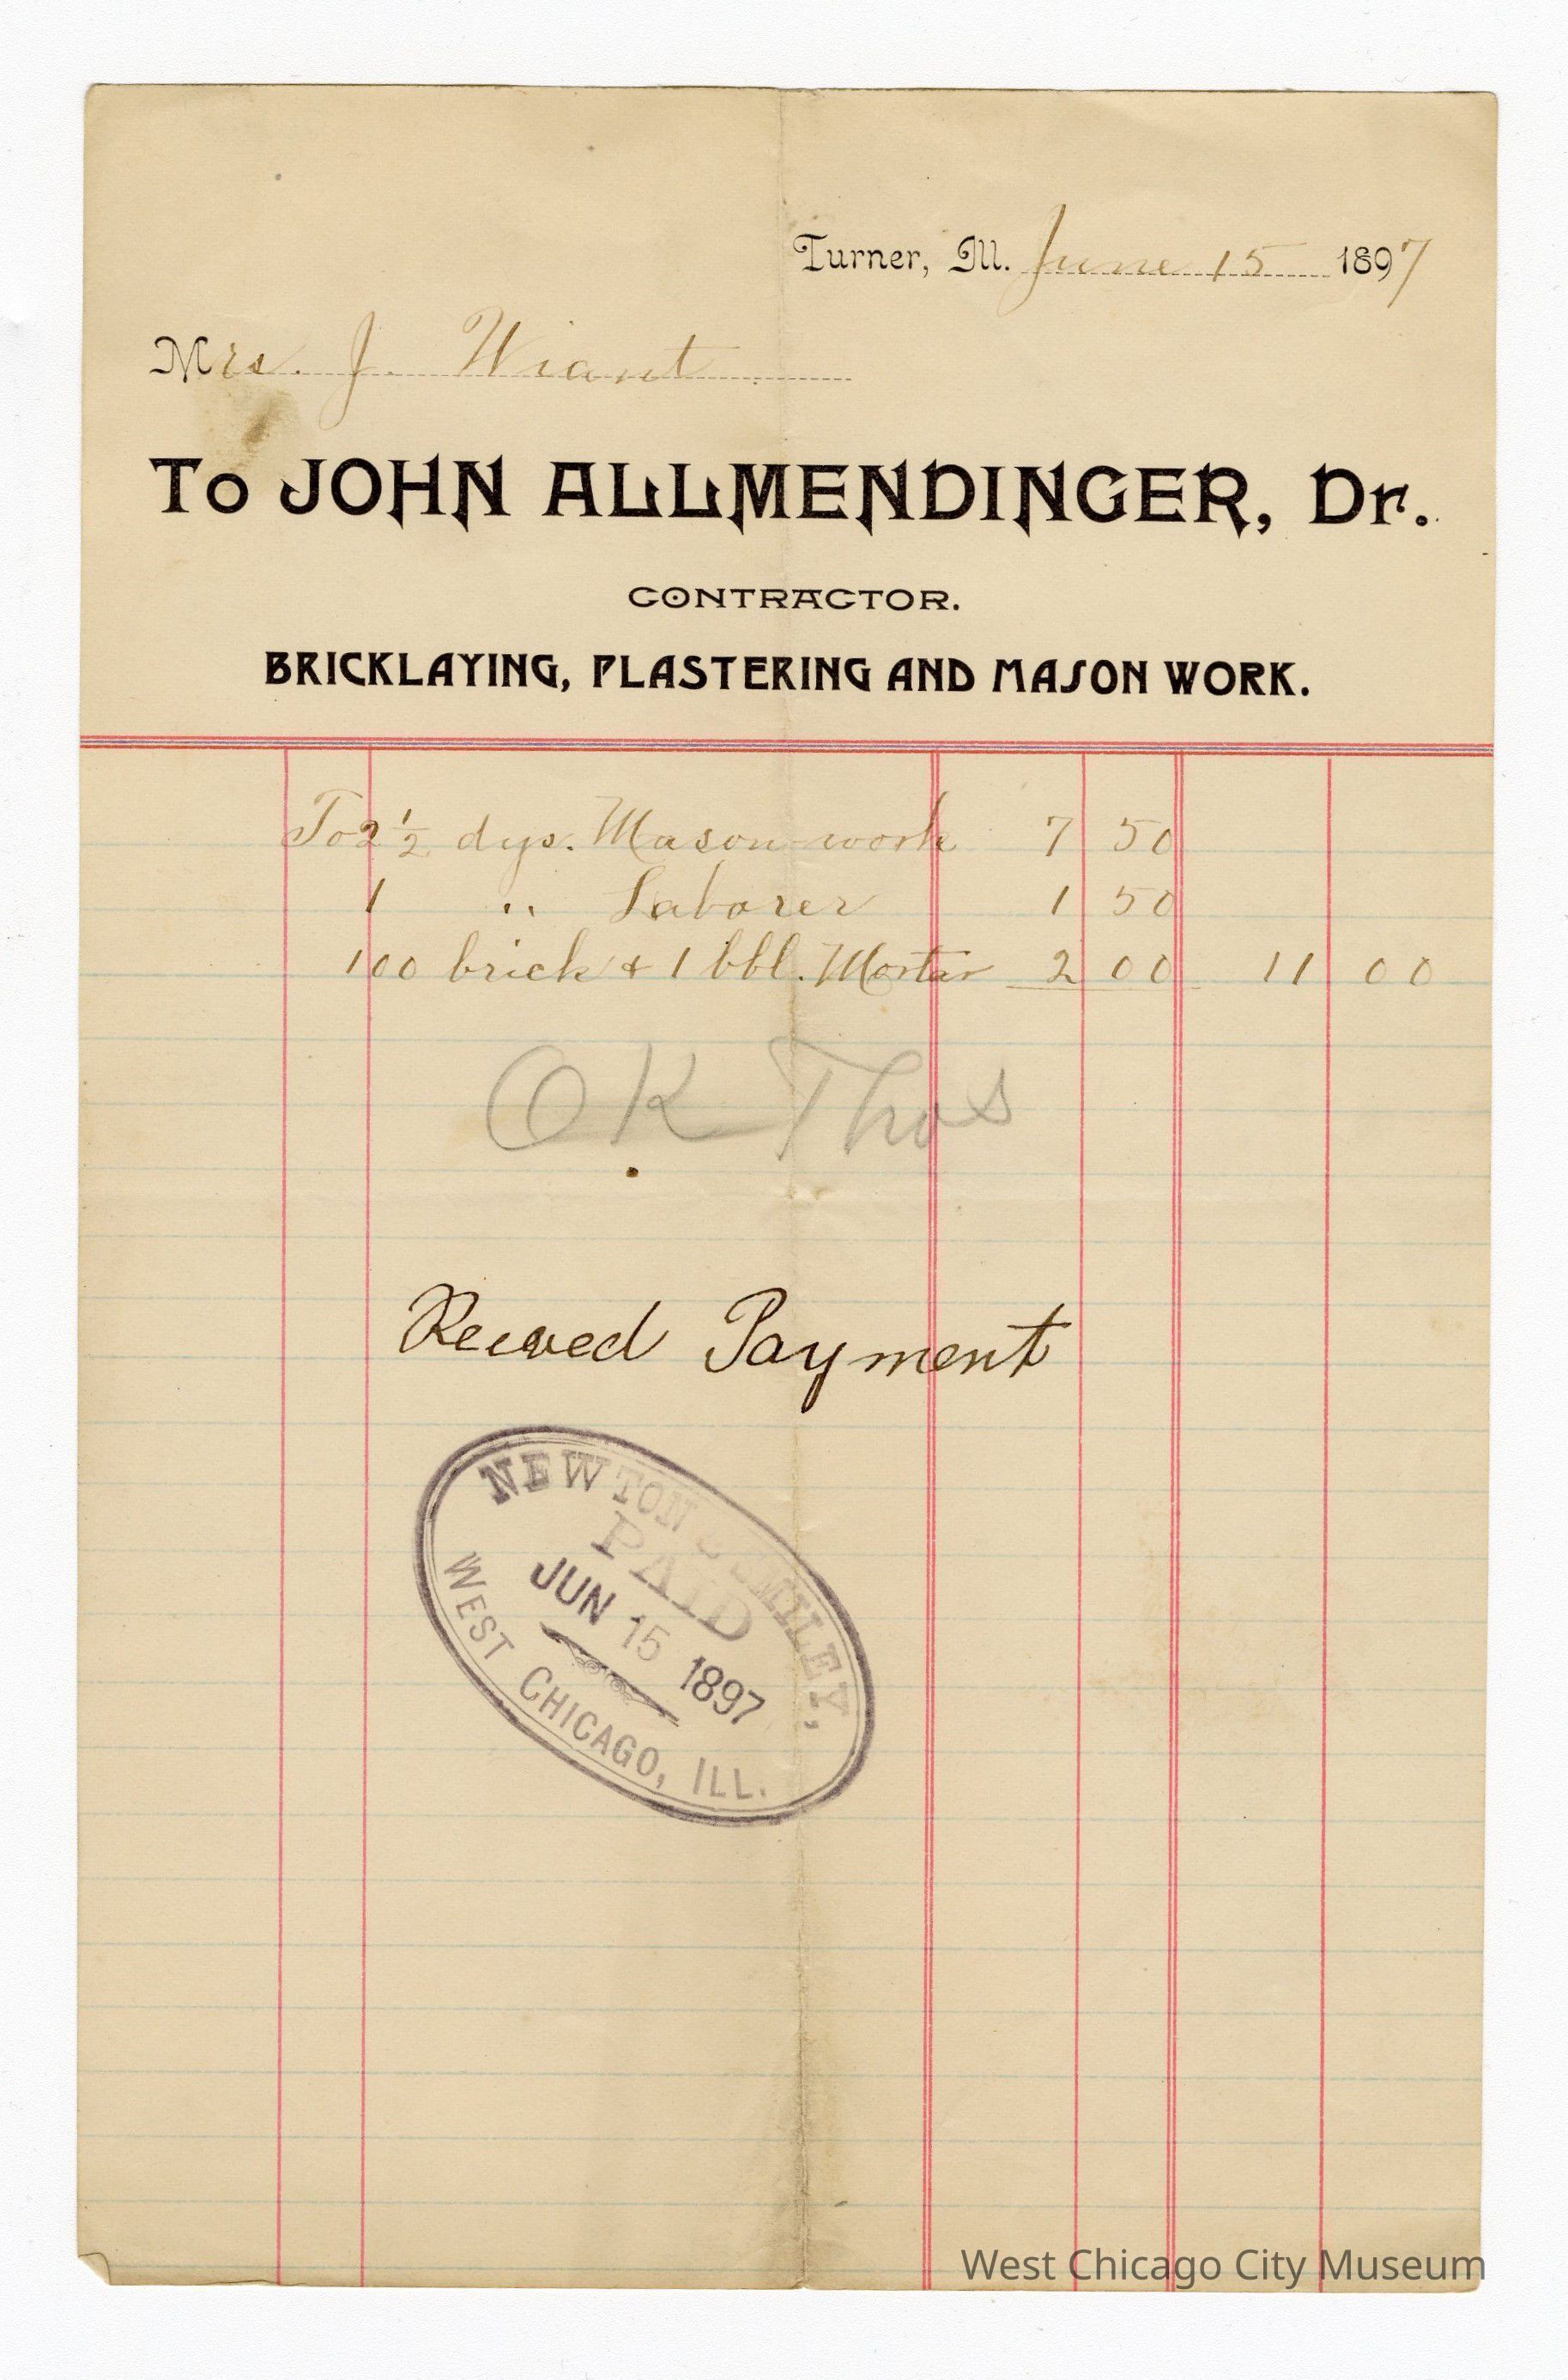 Turner, Ill. June 15 1897
Mrs. J. Wiant
To JOHN ALLMENDINGER, Dr.
CONTRACTOR.
BRICKLAYING, PLASTERING AND MASON WORK.
To 2 1/2 dys. Mason work 7 50
1 " Laborer 1 50
100 brick & 1 bbl. Mortar 2 00 11 00
OK Thos
Recived Payment
NEWTON SMILEY,
PAID
JUN 15 1897
WEST CHICAGO, ILL.
West Chicago City Museum